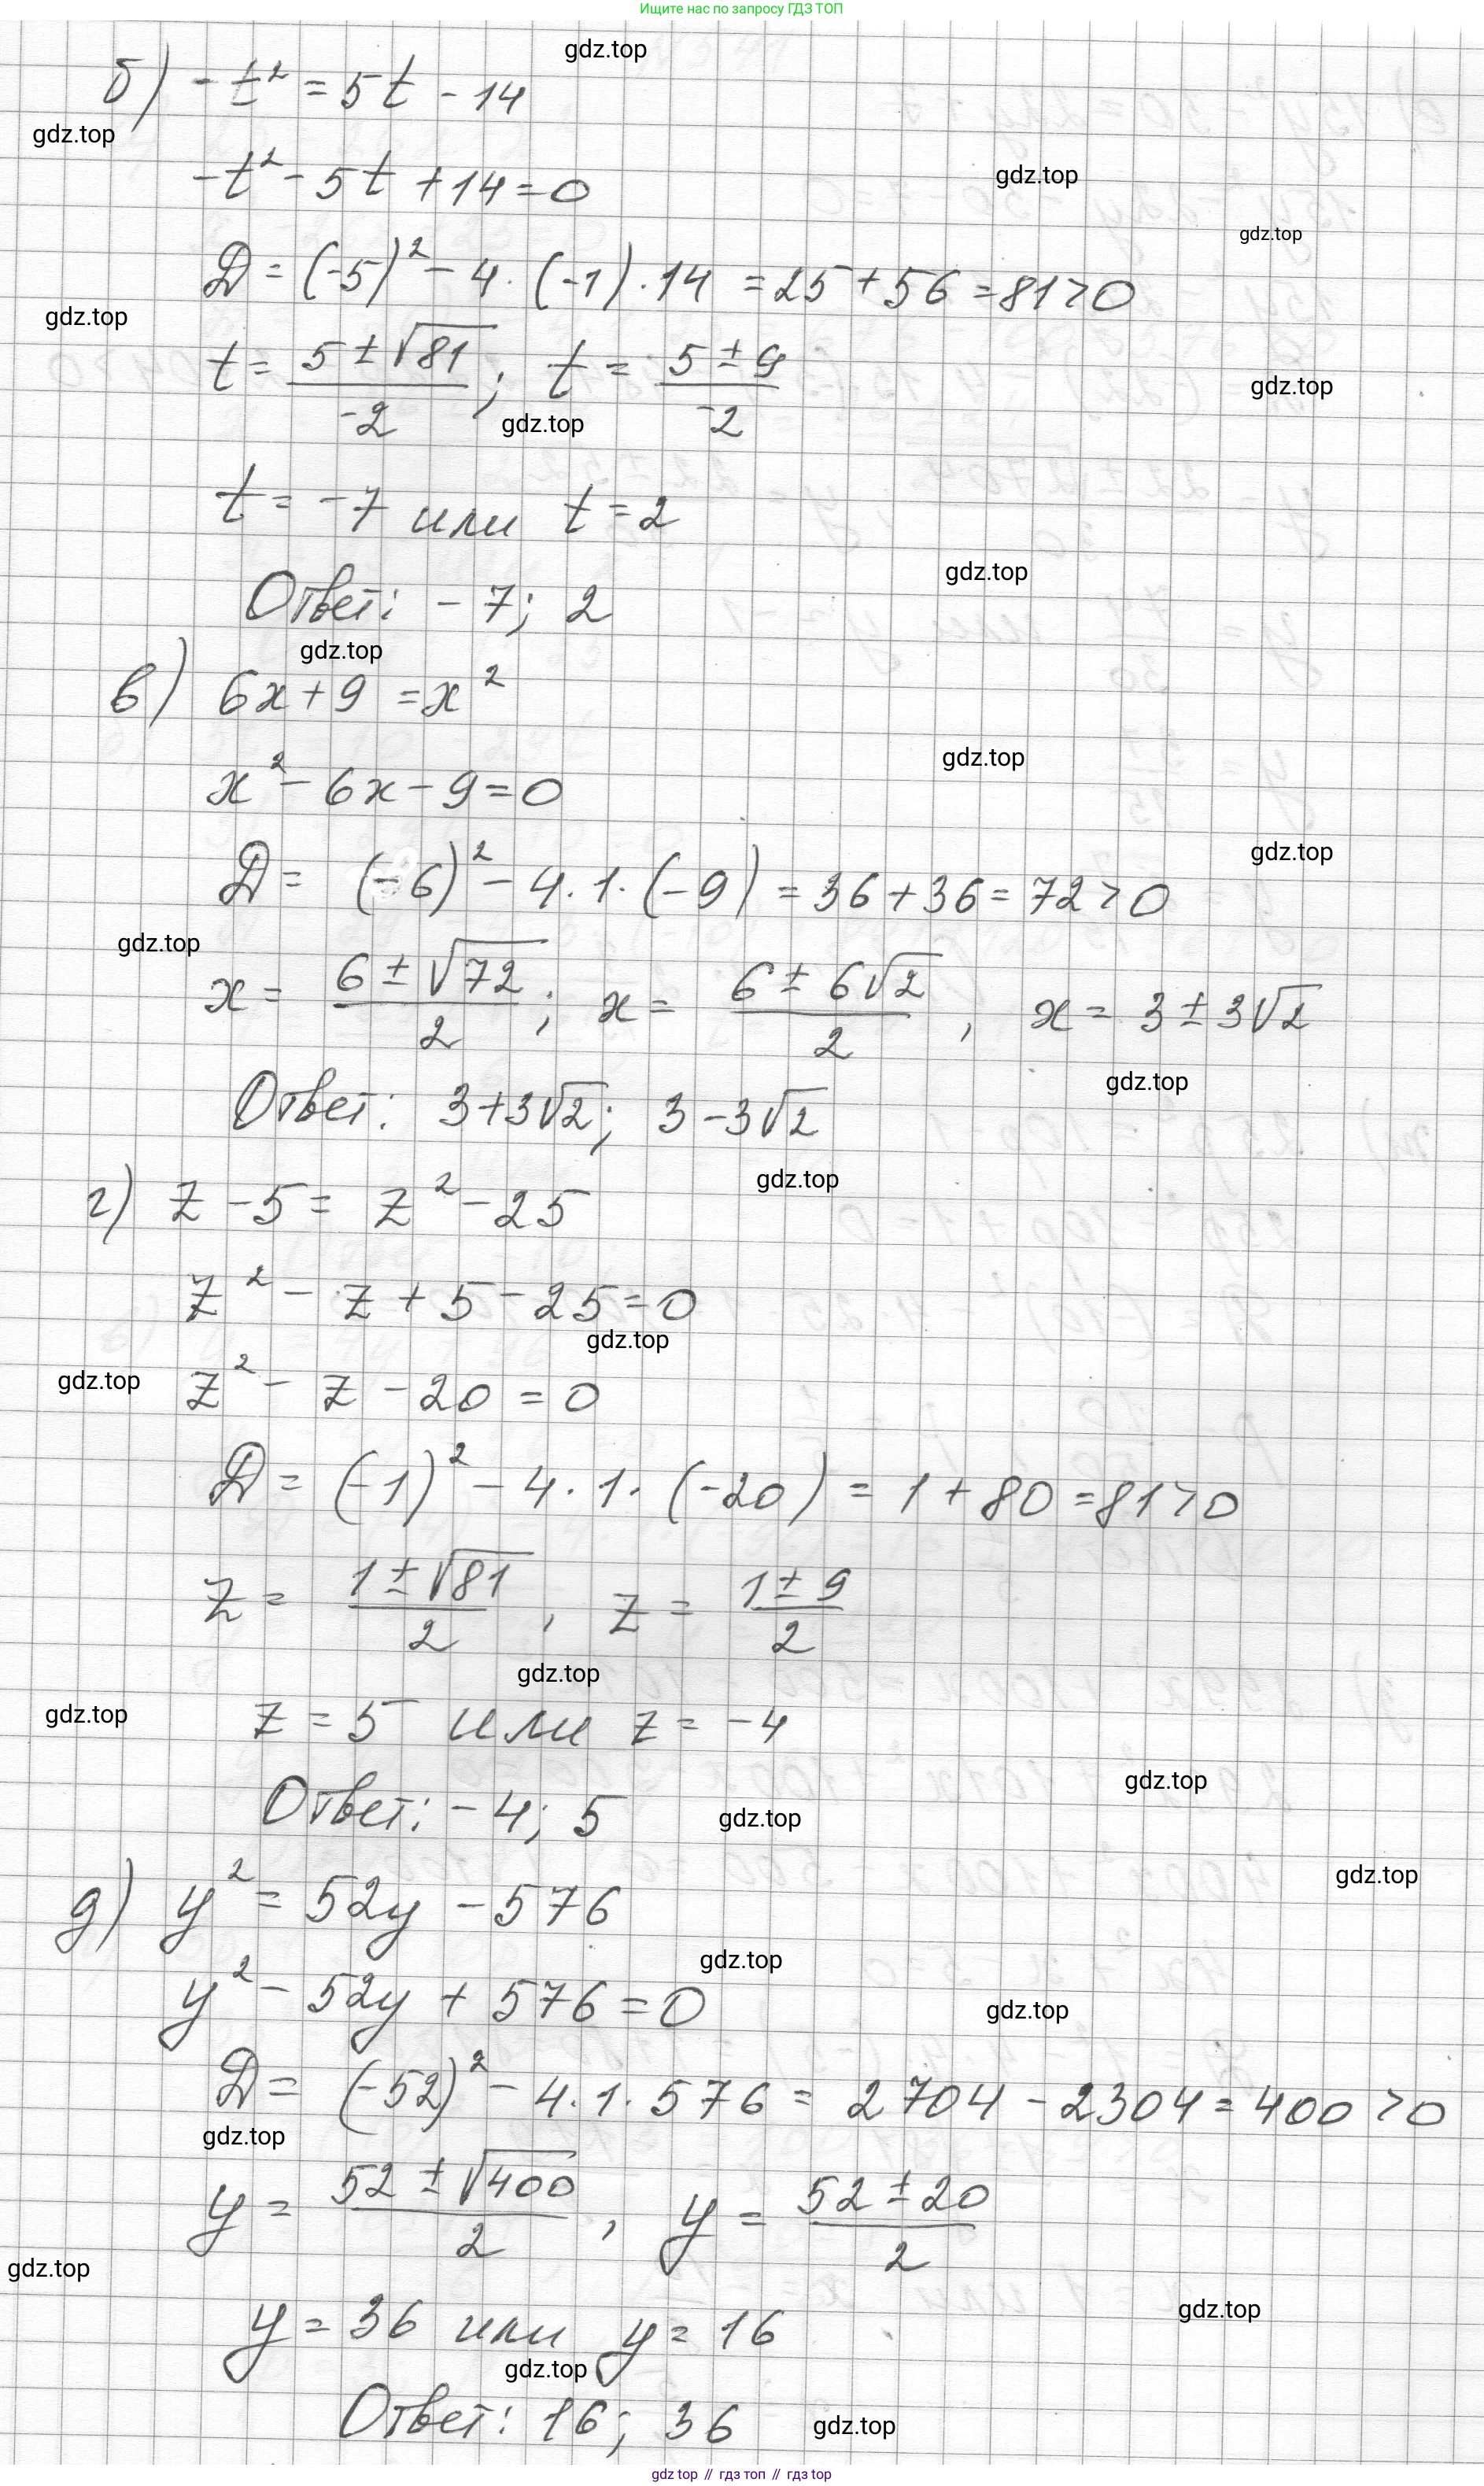 Ищите нас по запросу ГДЗ ТОП
gdz.top
б) -t² = 5t - 14
gdz.top
-t² - 5t + 14 = 0
gdz.top
gdz.top
D = (-5)² - 4 · (-1) · 14 = 25 + 56 = 81 > 0
gdz.top
t = (5 ± √81)/(-2); t = (5 ± 9)/(-2)
gdz.top
gdz.top
t = -7 или t = 2
gdz.top
Ответ: -7; 2
gdz.top
в) 6x + 9 = x²
gdz.top
x² - 6x - 9 = 0
gdz.top
D = (-6)² - 4 · 1 · (-9) = 36 + 36 = 72 > 0
gdz.top
x = (6 ± √72)/2; x = (6 ± 6√2)/2, x = 3 ± 3√2
gdz.top
Ответ: 3+3√2; 3-3√2
gdz.top
г) z - 5 = z² - 25
z² - z + 5 - 25 = 0
gdz.top
gdz.top
z² - z - 20 = 0
D = (-1)² - 4 · 1 · (-20) = 1 + 80 = 81 > 0
z = (1 ± √81)/2, z = (1 ± 9)/2
gdz.top
gdz.top
z = 5 или z = -4
gdz.top
Ответ: -4; 5
gdz.top
gdz.top
д) y² = 52y - 576
gdz.top
y² - 52y + 576 = 0
gdz.top
D = (-52)² - 4 · 1 · 576 = 2704 - 2304 = 400 > 0
gdz.top
y = (52 ± √400)/2, y = (52 ± 20)/2
gdz.top
gdz.top
y = 36 или y = 16
gdz.top
Ответ: 16; 36
gdz.top
gdz top // гдз топ // гдз top